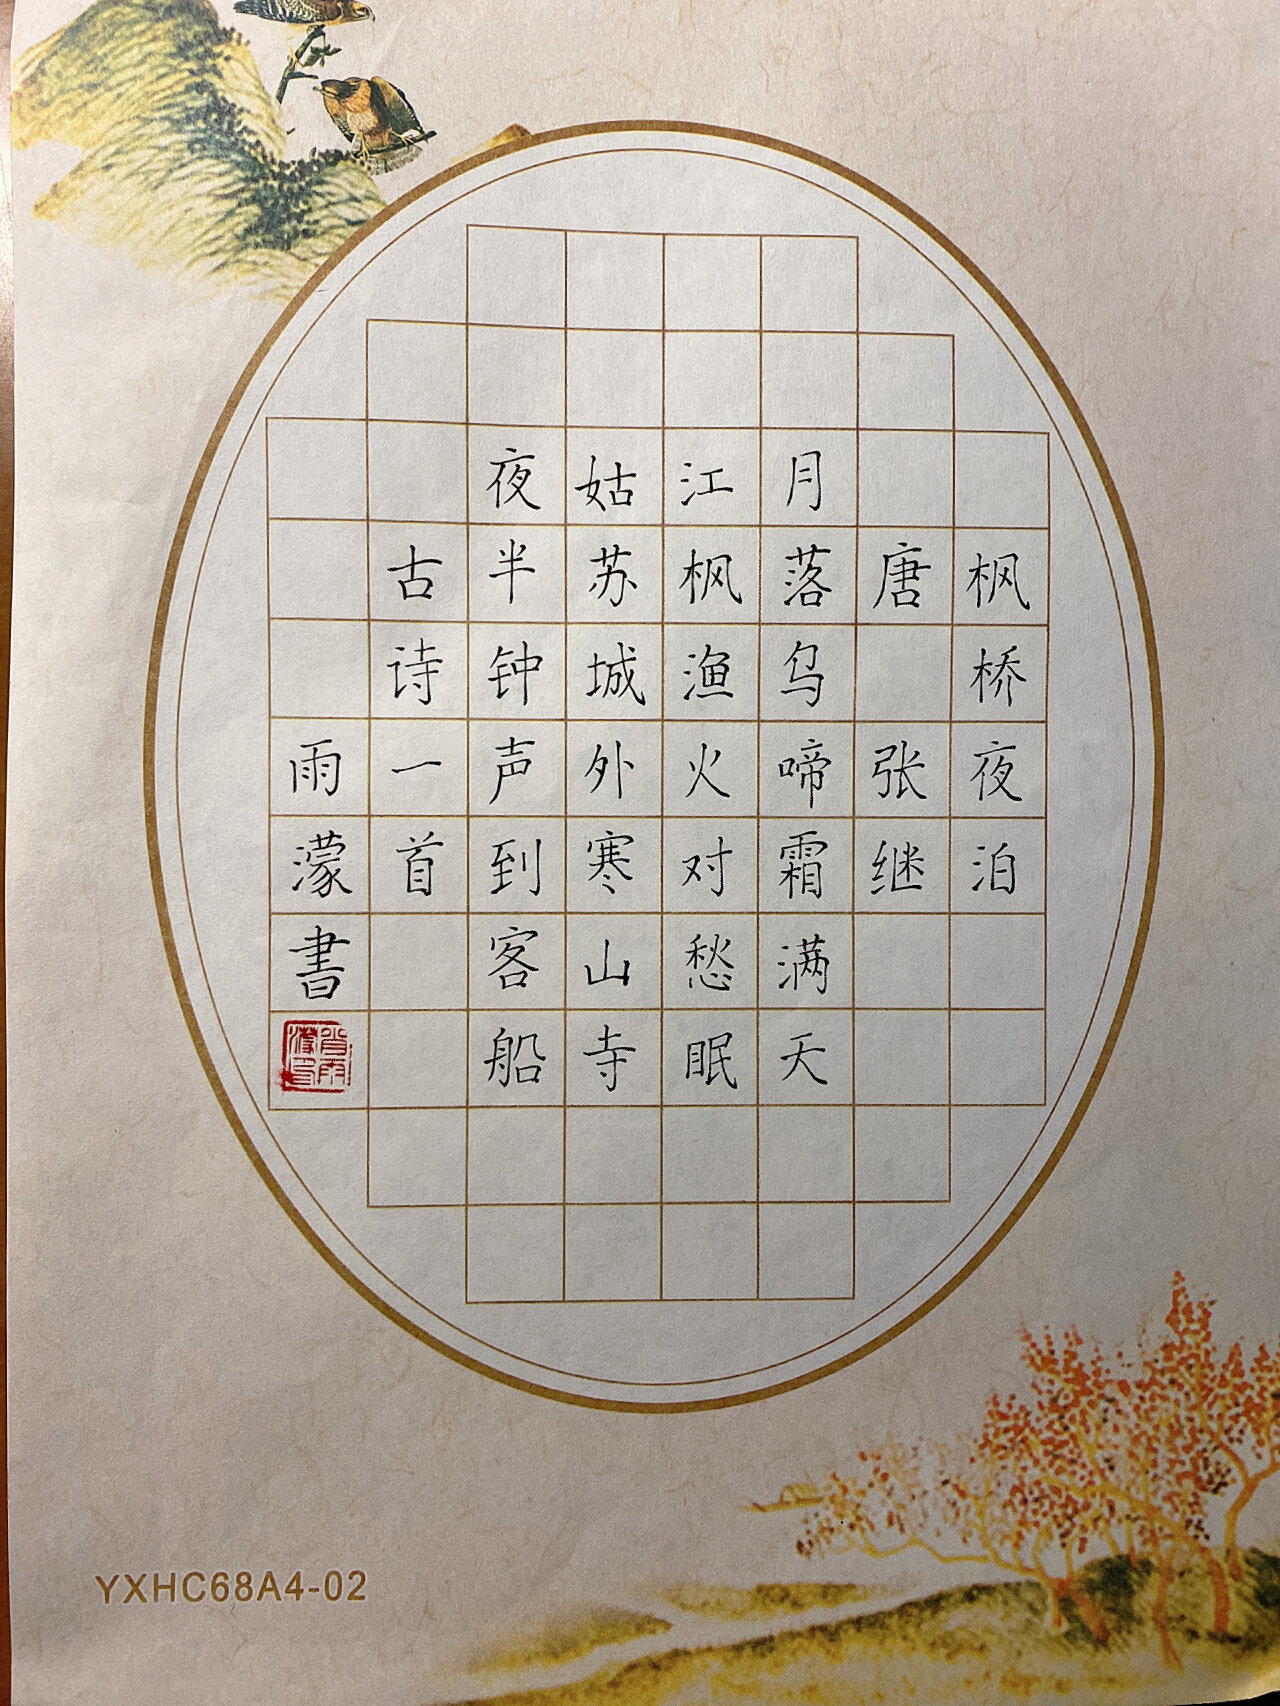 枫桥夜泊
唐 张继
月落乌啼霜满天
江枫渔火对愁眠
姑苏城外寒山寺
夜半钟声到客船
古诗一首
雨濛書
YXHC68A4-02